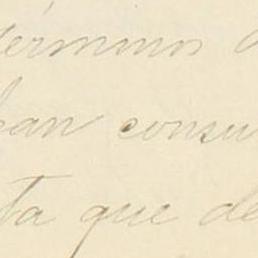 términos
ean consu
ta que de